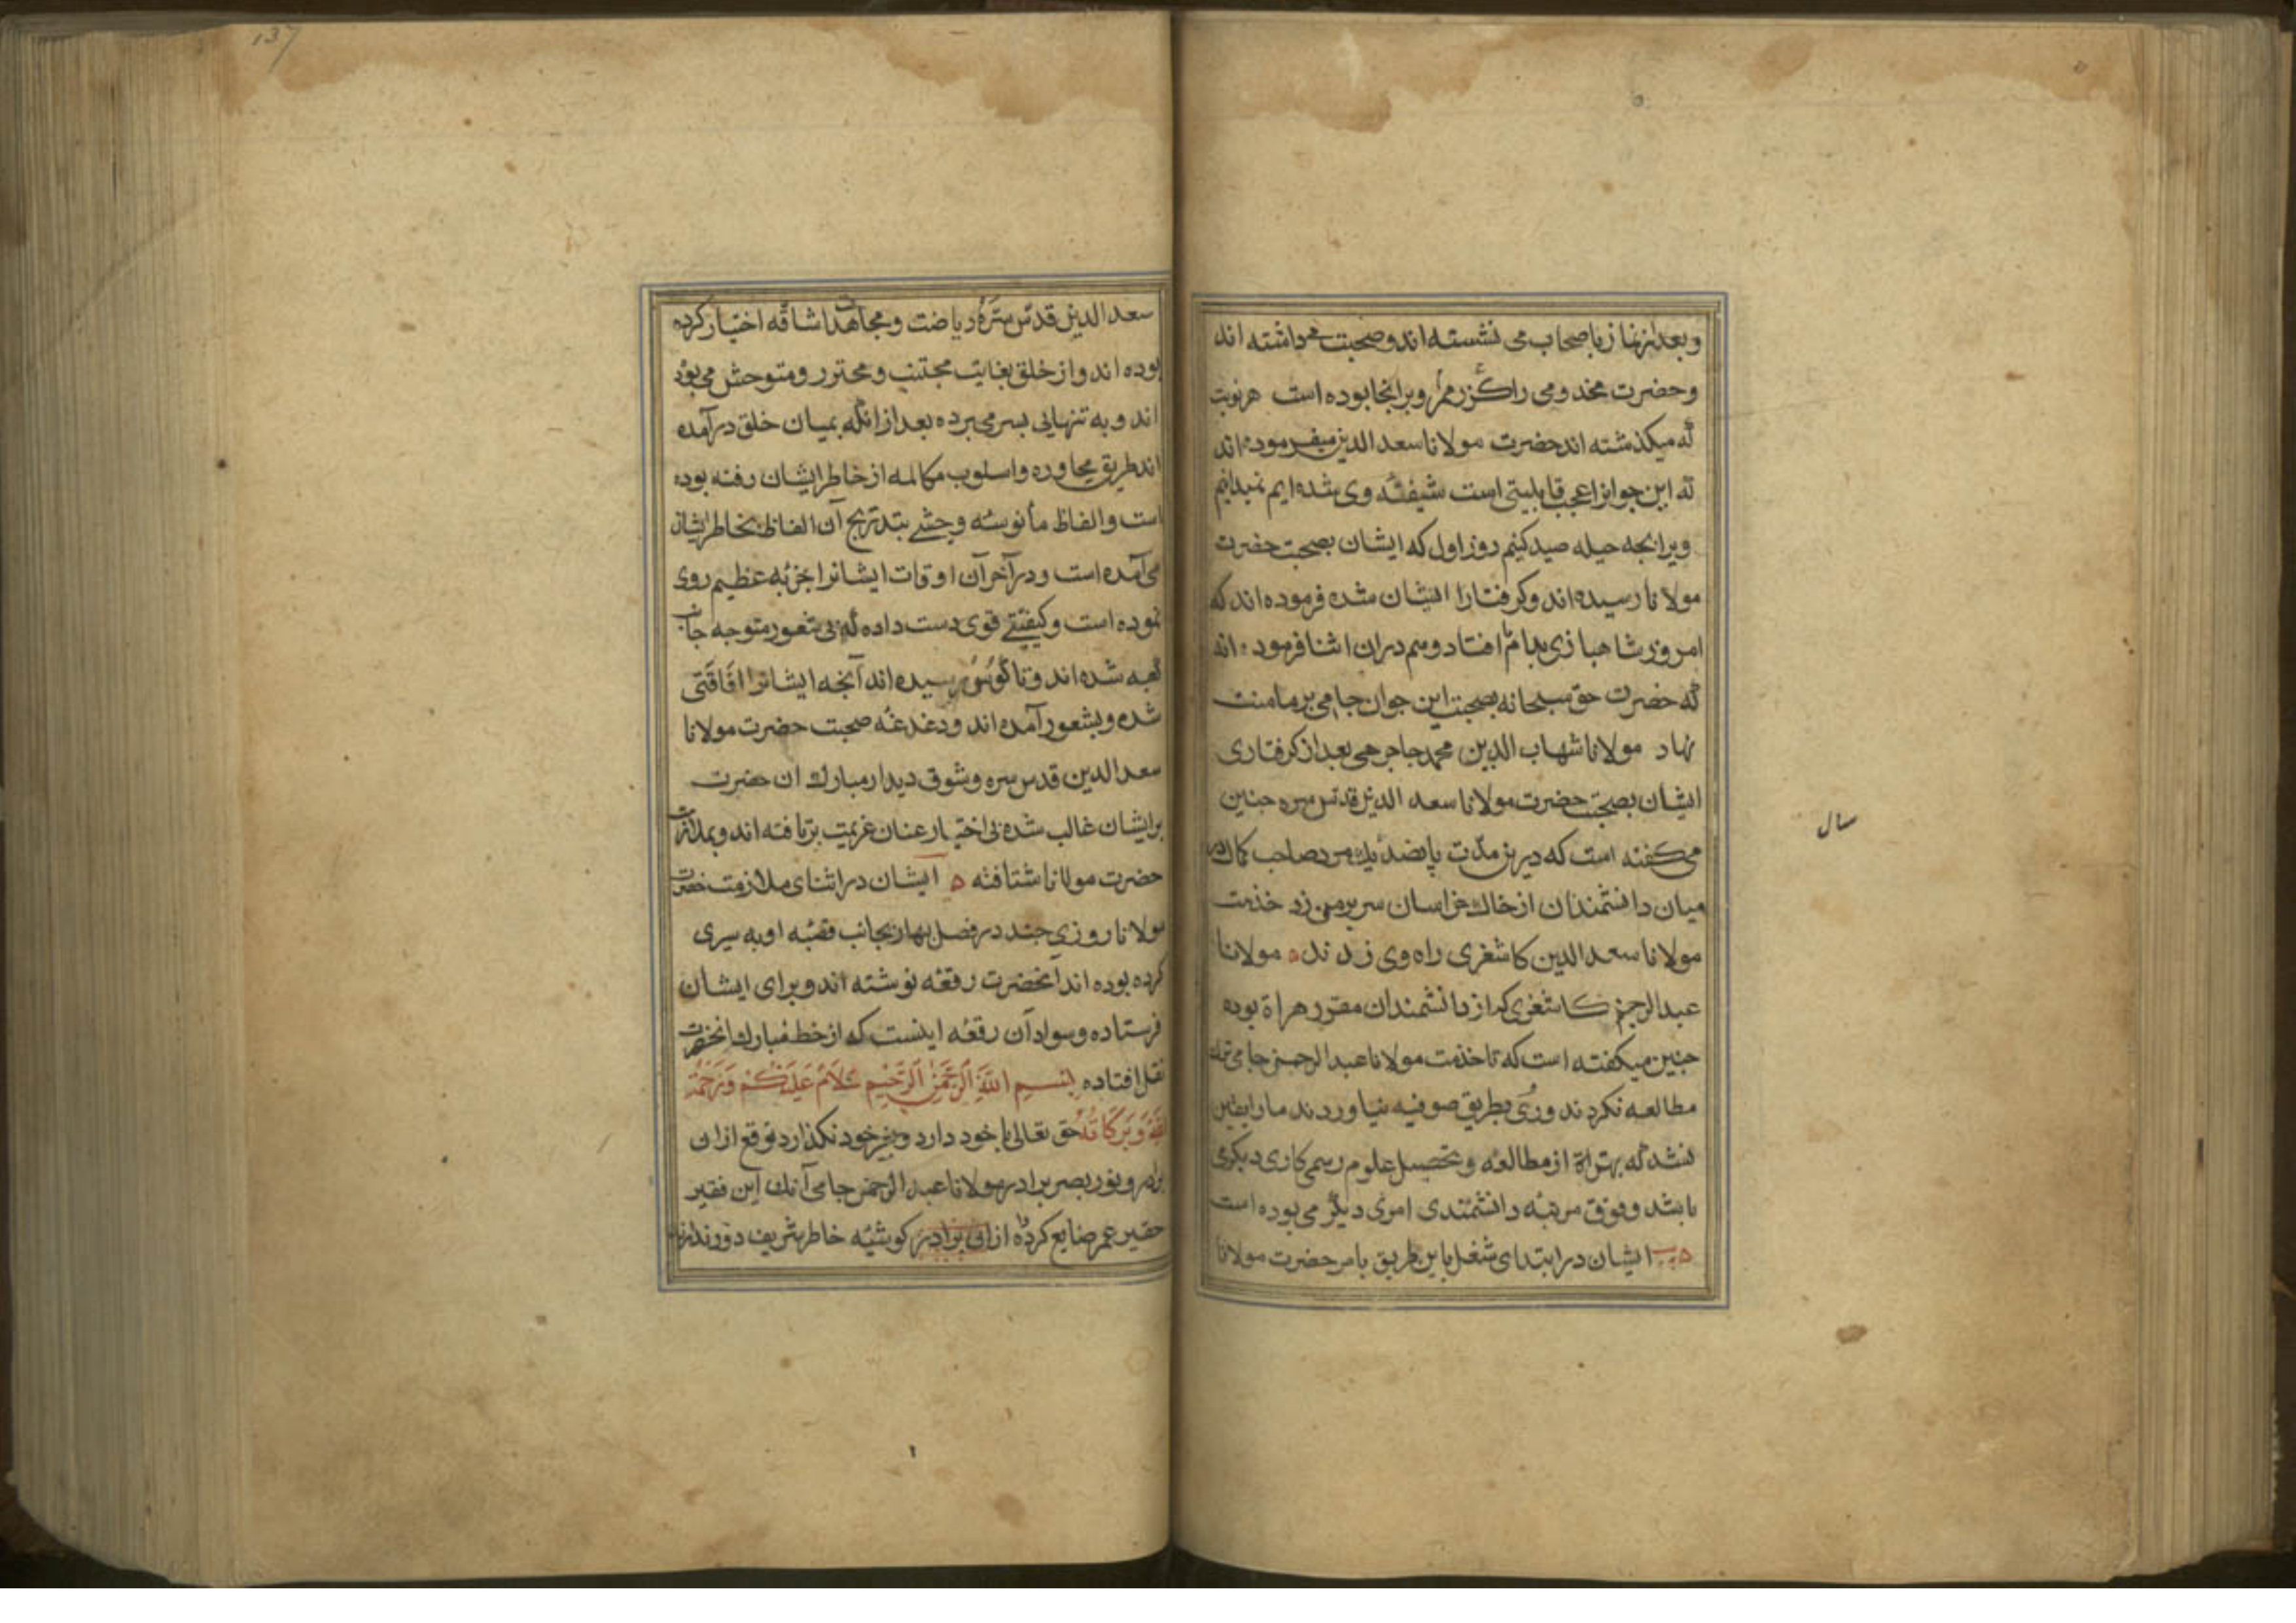 و بعد از نماز با صحاب می نشسته اند و صحبت می داشته اند
و حضرت مخدومی را گزر ممر و بر انجا بوده است هر نوبت
که میکذشته اند حضرت مولانا سعد الدین میفرموده اند
که این جوانرا عجب قابلیتی است شیفتهٔ وی شده ایم نمیدانیم
ویرا بجه حیله صید کنیم روز اول که ایشان بصحبت حضرت
مولانا رسیده اند و کرفتار ایشان شده فرموده اند که
امروز شاهبازی بدام افتاد و هم دران اثنا فرموده اند
که حضرت حق سبحانه بصحبت این جوان جامی بر ما منت
نهاد مولانا شهاب الدین محمد جاجرمی بعد از کرفتاری
ایشان بصحبت حضرت مولانا سعد الدین قدس سره جنین
می کفته است که درین مدت پانصد یک مرد صاحب کمال در
سال
میان دانشمندان از خاک خراسان سر بر می زد خذمت
مولانا سعد الدین کاشغری راه وی زدند ه مولانا
عبد الرحیم کاشغری که از دانشمندان مقرر هراة بوده
جنین میکفته است که تا خذمت مولانا عبد الرحمن جامی ترک
مطالعه نکردند و روی بطریق صوفیه نیاوردند ما را یقین
نشد که بهتر از مطالعه و تحصیل علوم رسمی کاری دیکری
باشد و فوق مرتبه دانشمندی امری دیگر می بوده است
ایشان در ابتدای شغل باین طریق بامر حضرت مولانا
137
سعد الدین قدس سره ریاضت و مجاهدات شاقه اختیار کرده
بوده اند و از خلق بغایت مجتنب و محترز و متوحش می بوده
اند و به تنهایی بسر می برده بعد از انکه بمیان خلق درآمده
اند طریق محاوره و اسلوب مکالمه از خاطر ایشان رفته بوده
است و الفاظ مأنوسه وحشی بتدریج آن الفاظ بخاطر ایشان
می آمده است و در آخر آن اوقات ایشانرا جذبه عظیم روی
نموده است و کیفیتی قوی دست داده که بی شعور متوجه جانب
کعبه شده اند و تا کوسو رسیده اند آنجه ایشانرا افاقتی
شده و بشعور آمده اند و دغدغه صحبت حضرت مولانا
سعد الدین قدس سره و شوق دیدار مبارک ان حضرت
بر ایشان غالب شده بی اختیار عنان عزیمت برتافته اند و بملازمت
حضرت مولانا شتافته ه ایشان در اثنای ملازمت حضرت
مولانا روزی جند در فصل بهار بجانب قصبه اوبه سیری
کرده بوده اند آنحضرت رقعه نوشته اند و برای ایشان
فرستاده و سواد آن رقعه اینست که از خط مبارک انحضرت
نقل افتاده بسم الله الرحمن الرحیم سلام علیکم و رحمة
الله و برکاته حق تعالی با خود دارد و بغیر خود نکذارد توقع از ان
برادر و نور بصر برادر مولانا عبد الرحمن جامی آنک این فقیر
حقیر عمر ضایع کرده از ان برادر کوشهٔ خاطر شریف دور ندارند